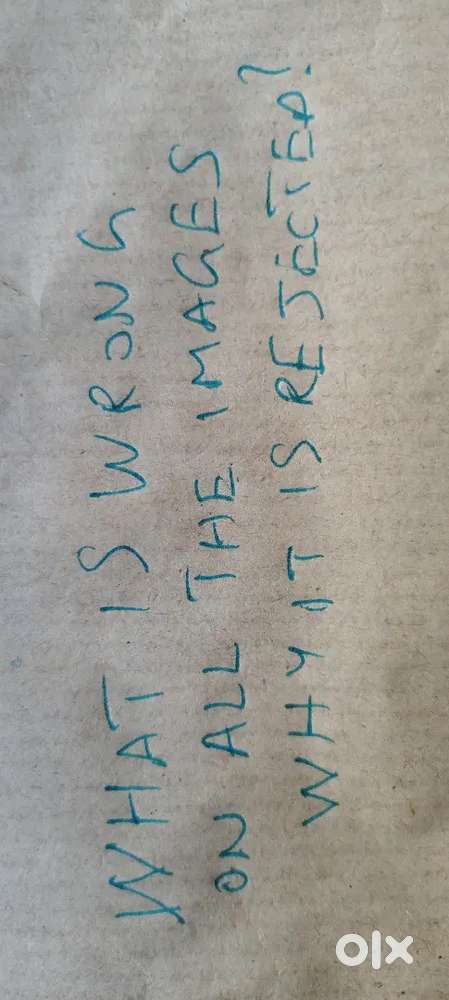 WHAT IS WRONG
ON ALL THE IMAGES
WHY IT IS REJECTED?
olx